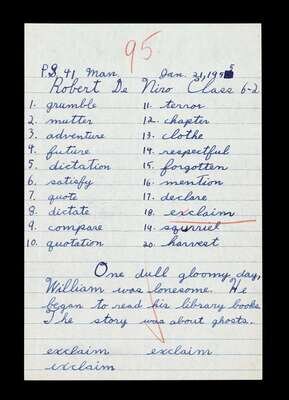 95
P.S. 41 Man. Jan. 21, 1955
Robert De Niro Class 6-2
1. grumble 11. terror
2. mutter 12. chapter
3. adventure 13. clothe
4. future 14. respectful
5. dictation 15. forgotten
6. satisfy 16. mention
7. quote 17. declare
8. dictate 18. exclaim
9. compare 19. squirrel
10. quotation 20. harvest
One dull gloomy day,
William was lonesome. He
began to read his library books.
The story was about ghosts.
exclaim exclaim
exclaim